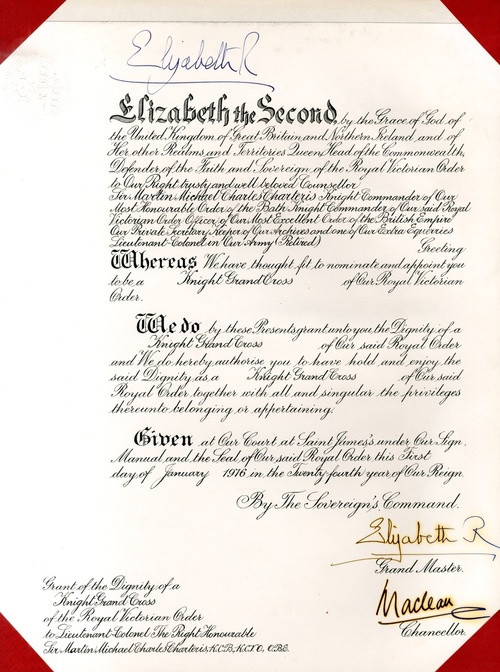 Elizabeth R
Elizabeth the Second, by the Grace of God of
the United Kingdom of Great Britain and Northern Ireland and of
Her other Realms and Territories Queen, Head of the Commonwealth,
Defender of the Faith and Sovereign of the Royal Victorian Order
to Our Right trusty and well beloved Counsellor
Sir Martin Michael Charles Charteris Knight Commander of Our
Most Honourable Order of the Bath Knight Commander of Our said Royal
Victorian Order Officer of Our Most Excellent Order of the British Empire
Our Private Secretary Keeper of Our Archives and one of Our Extra Equerries
Lieutenant-Colonel in Our Army (Retired) Greeting
Whereas We have thought fit to nominate and appoint you
to be a Knight Grand Cross of Our Royal Victorian
Order.
We do by these Presents grant unto you the Dignity of a
Knight Grand Cross of Our said Royal Order
and We do hereby authorise you to have hold and enjoy the
said Dignity as a Knight Grand Cross of Our said
Royal Order together with all and singular the privileges
thereunto belonging or appertaining.
Given at Our Court at Saint James's under Our Sign
Manual and the Seal of Our said Royal Order this First
day of January 1976 in the Twenty-fourth year of Our Reign
By The Sovereign's Command.
Elizabeth R
Grand Master.
Maclean
Chancellor.
Grant of the Dignity of a
Knight Grand Cross
of the Royal Victorian Order
to Lieutenant-Colonel The Right Honourable
Sir Martin Michael Charles Charteris, K.C.B., K.C.V.O., O.B.E.